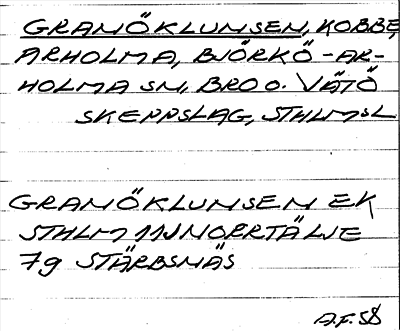 GRANÖKLUMSEN, KOBBE,
ARHOLMA, BJÖRKÖ-AR-
HOLMA SN, BRO O. VÄTÖ
SKEPPSLAG, STHLMSL
GRANÖKLUMSEN EK
STHLM 11J NORRTÄLJE
7g STÄRBSNÄS
A.F. 58